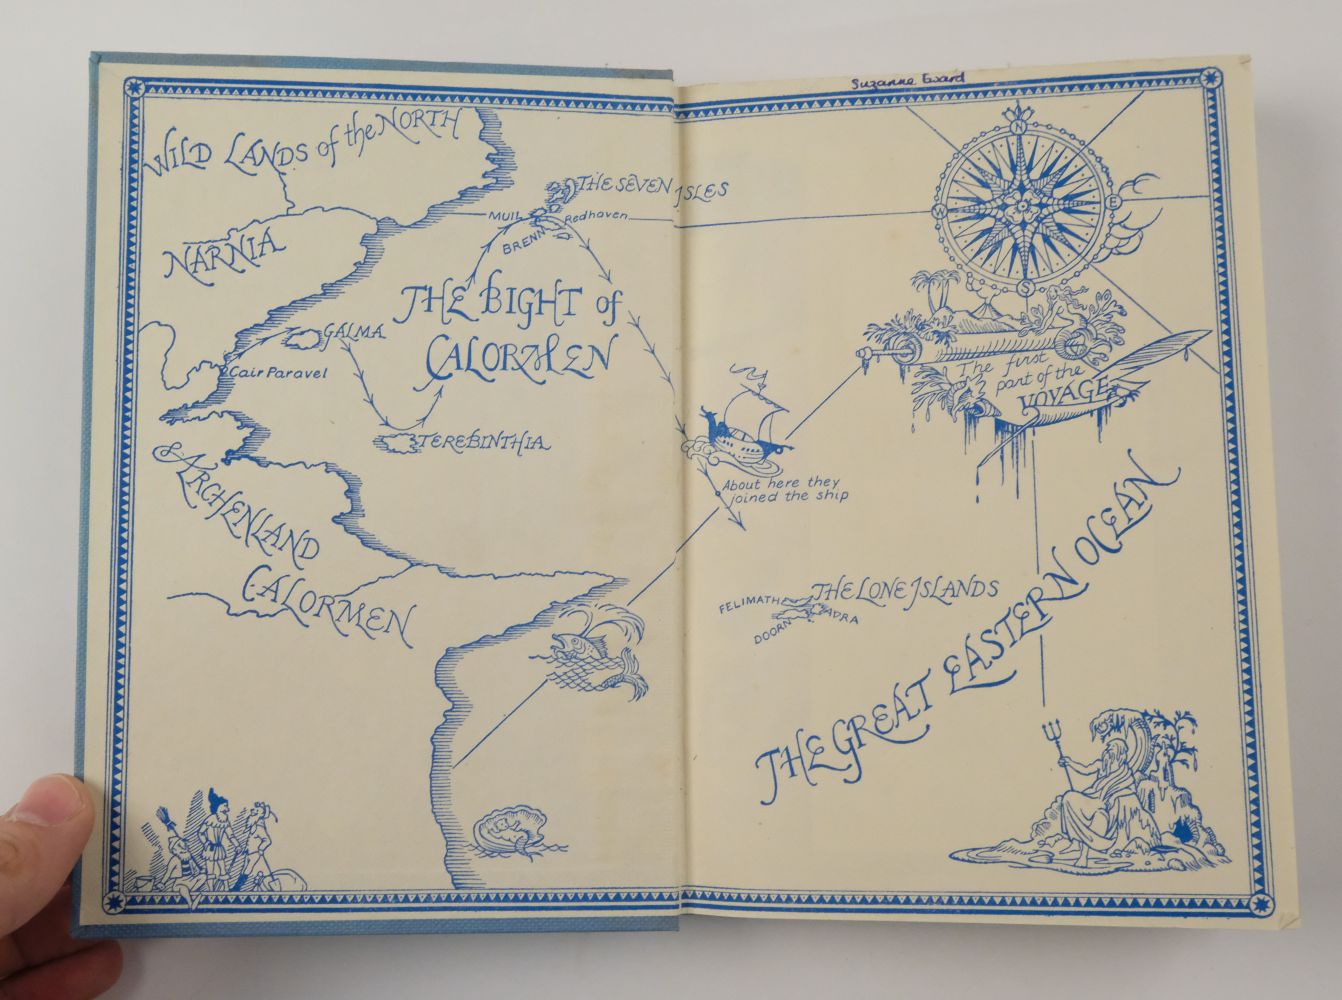 Suzanne Eward
WILD LANDS of the NORTH
NARNIA
THE SEVEN ISLES
MUIL
Redhaven
BRENN
THE BIGHT of
CALORMEN
GALMA
Cair Paravel
TEREBINTHIA
ARCHENLAND
CALORMEN
N
W
E
S
The first
part of the
VOYAGE
About here they
joined the ship
THE LONE ISLANDS
FELIMATH
DOORN
AVRA
THE GREAT EASTERN OCEAN